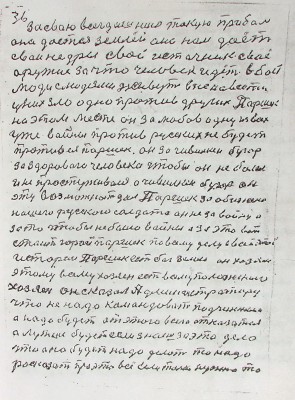 36
За свою
она дается землей она нам даёт
свои недры свой источник своё
оружие за что человек идёт в бой
люди с людями живут в ненависти
у них зло одно против других Паршик
на этом месте он за любов одну из вас
уже войны против русских не будет
против Паршик. он за чивилин бугор
за здорового человека чтобы он не болел
и не простуживался чивилин бугор он
эту возможност дал Паршик за обиженого
нашего русского солдата он не за войну а
за то чтобы не было войны а за это вот
стоит горой Паршик по всему делу всей этой
истории Паршик ест бог земли он хозяин
этому всему хозяин ест всему положенного
хозяин он сказал Администратору
что не надо командоват подчиненым
а надо будет от этого всего отказатся
а лутше будет если за это дело
это она будет надо делат то надо
росказат про это все если так нужно то